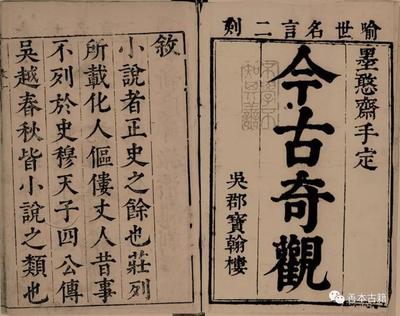 喻世名言二刻
墨憨齋手定
今古奇觀
吳郡寶翰樓
敘
小說者正史之餘也莊列
所載化人傴僂丈人昔事
不列於史穆天子四公傳
吳越春秋皆小說之類也
善本古籍